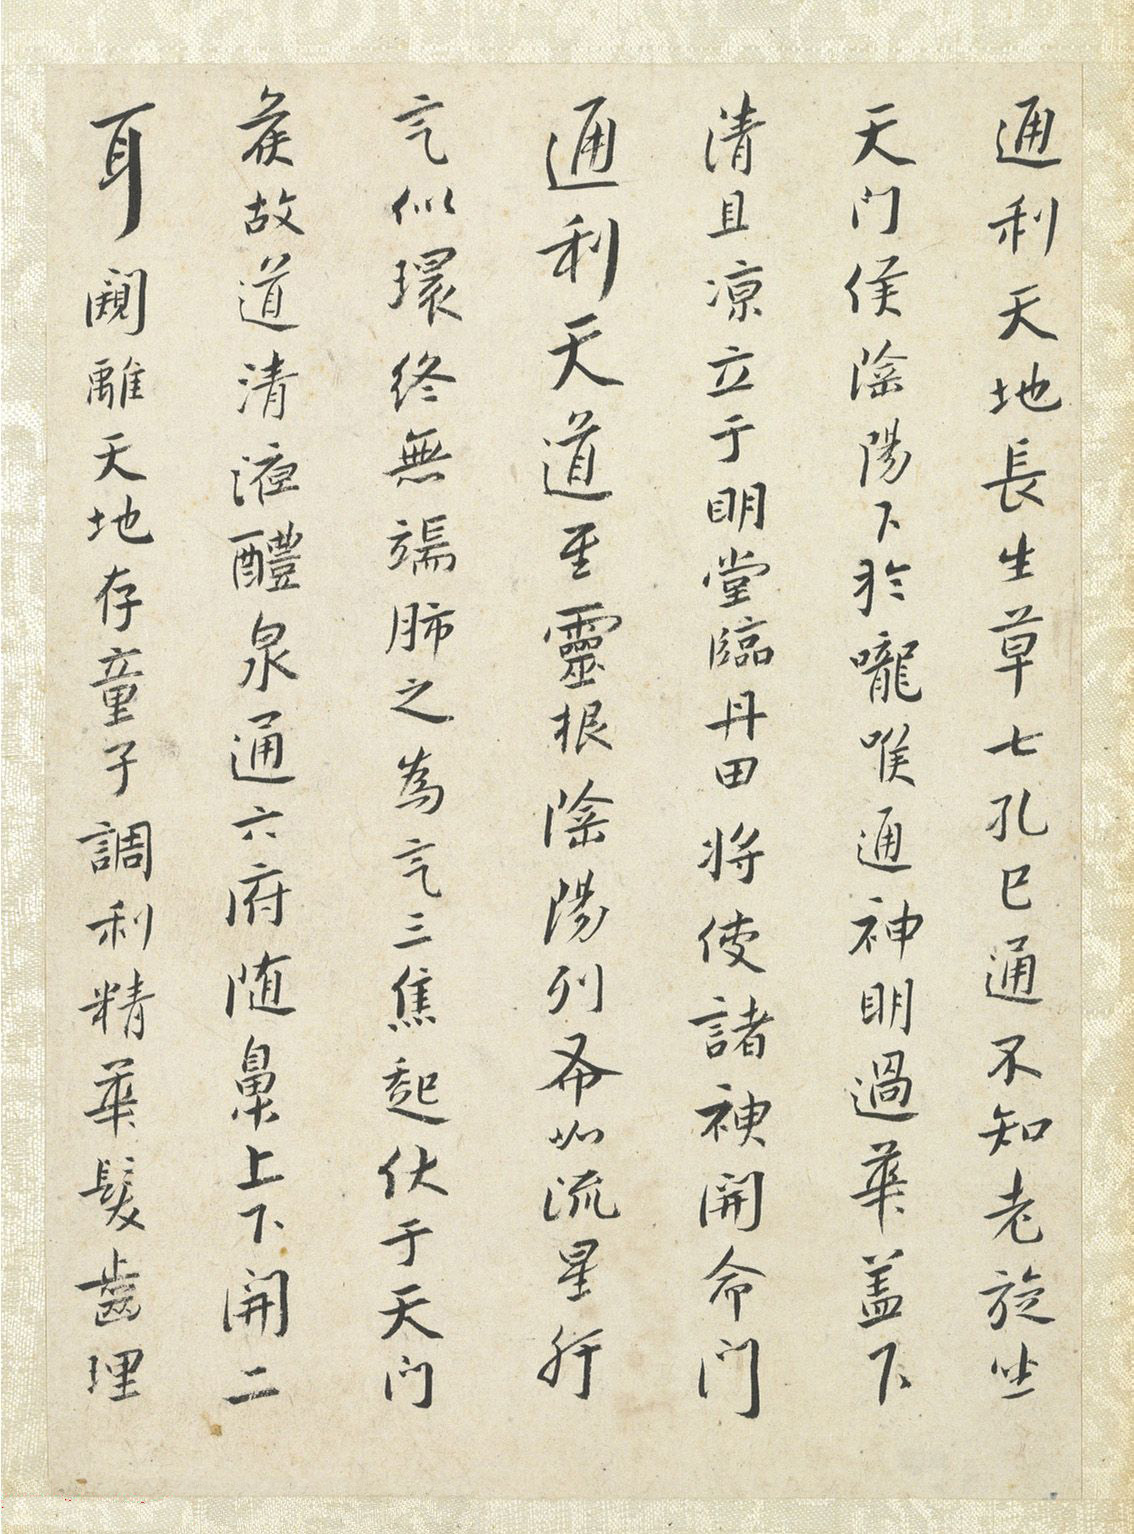 通利天地長生草七孔已通不知老旋坐
天門候陰陽下於嚨喉通神明過華蓋下
清且涼立于明堂臨丹田將使諸神開命門
通利天道至靈根陰陽列布如流星肝
氣似環終無端肺之為氣三焦起伏于天門
候故道清液醴泉通六府随鼻上下開二
耳闚離天地存童子調利精華髮齒理